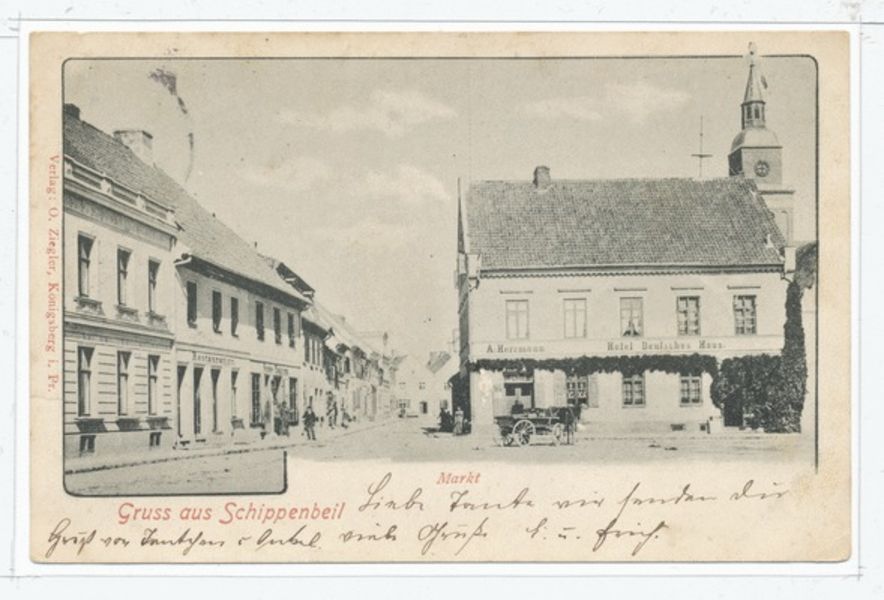 Verlag: O. Ziegler, Königsberg i. Pr.
Restauration
A. Herrmann
Hotel Deutsches Haus.
Markt
Gruss aus Schippenbeil
Liebe Tante wir senden dir
Gruß von Tantchen u Onkel. viele Grüße E. u. Erich.